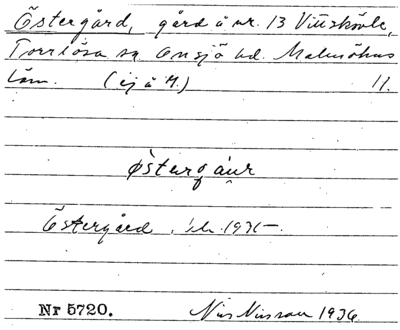 Östergård, gård å nr. 13 Vittskövle,
Torrlösa sn Onsjö hd. Malmöhus
län. (ej å M.) 11.
östergáur
Östergård 1931-
Nr 5720. Nils Nilsson 1936